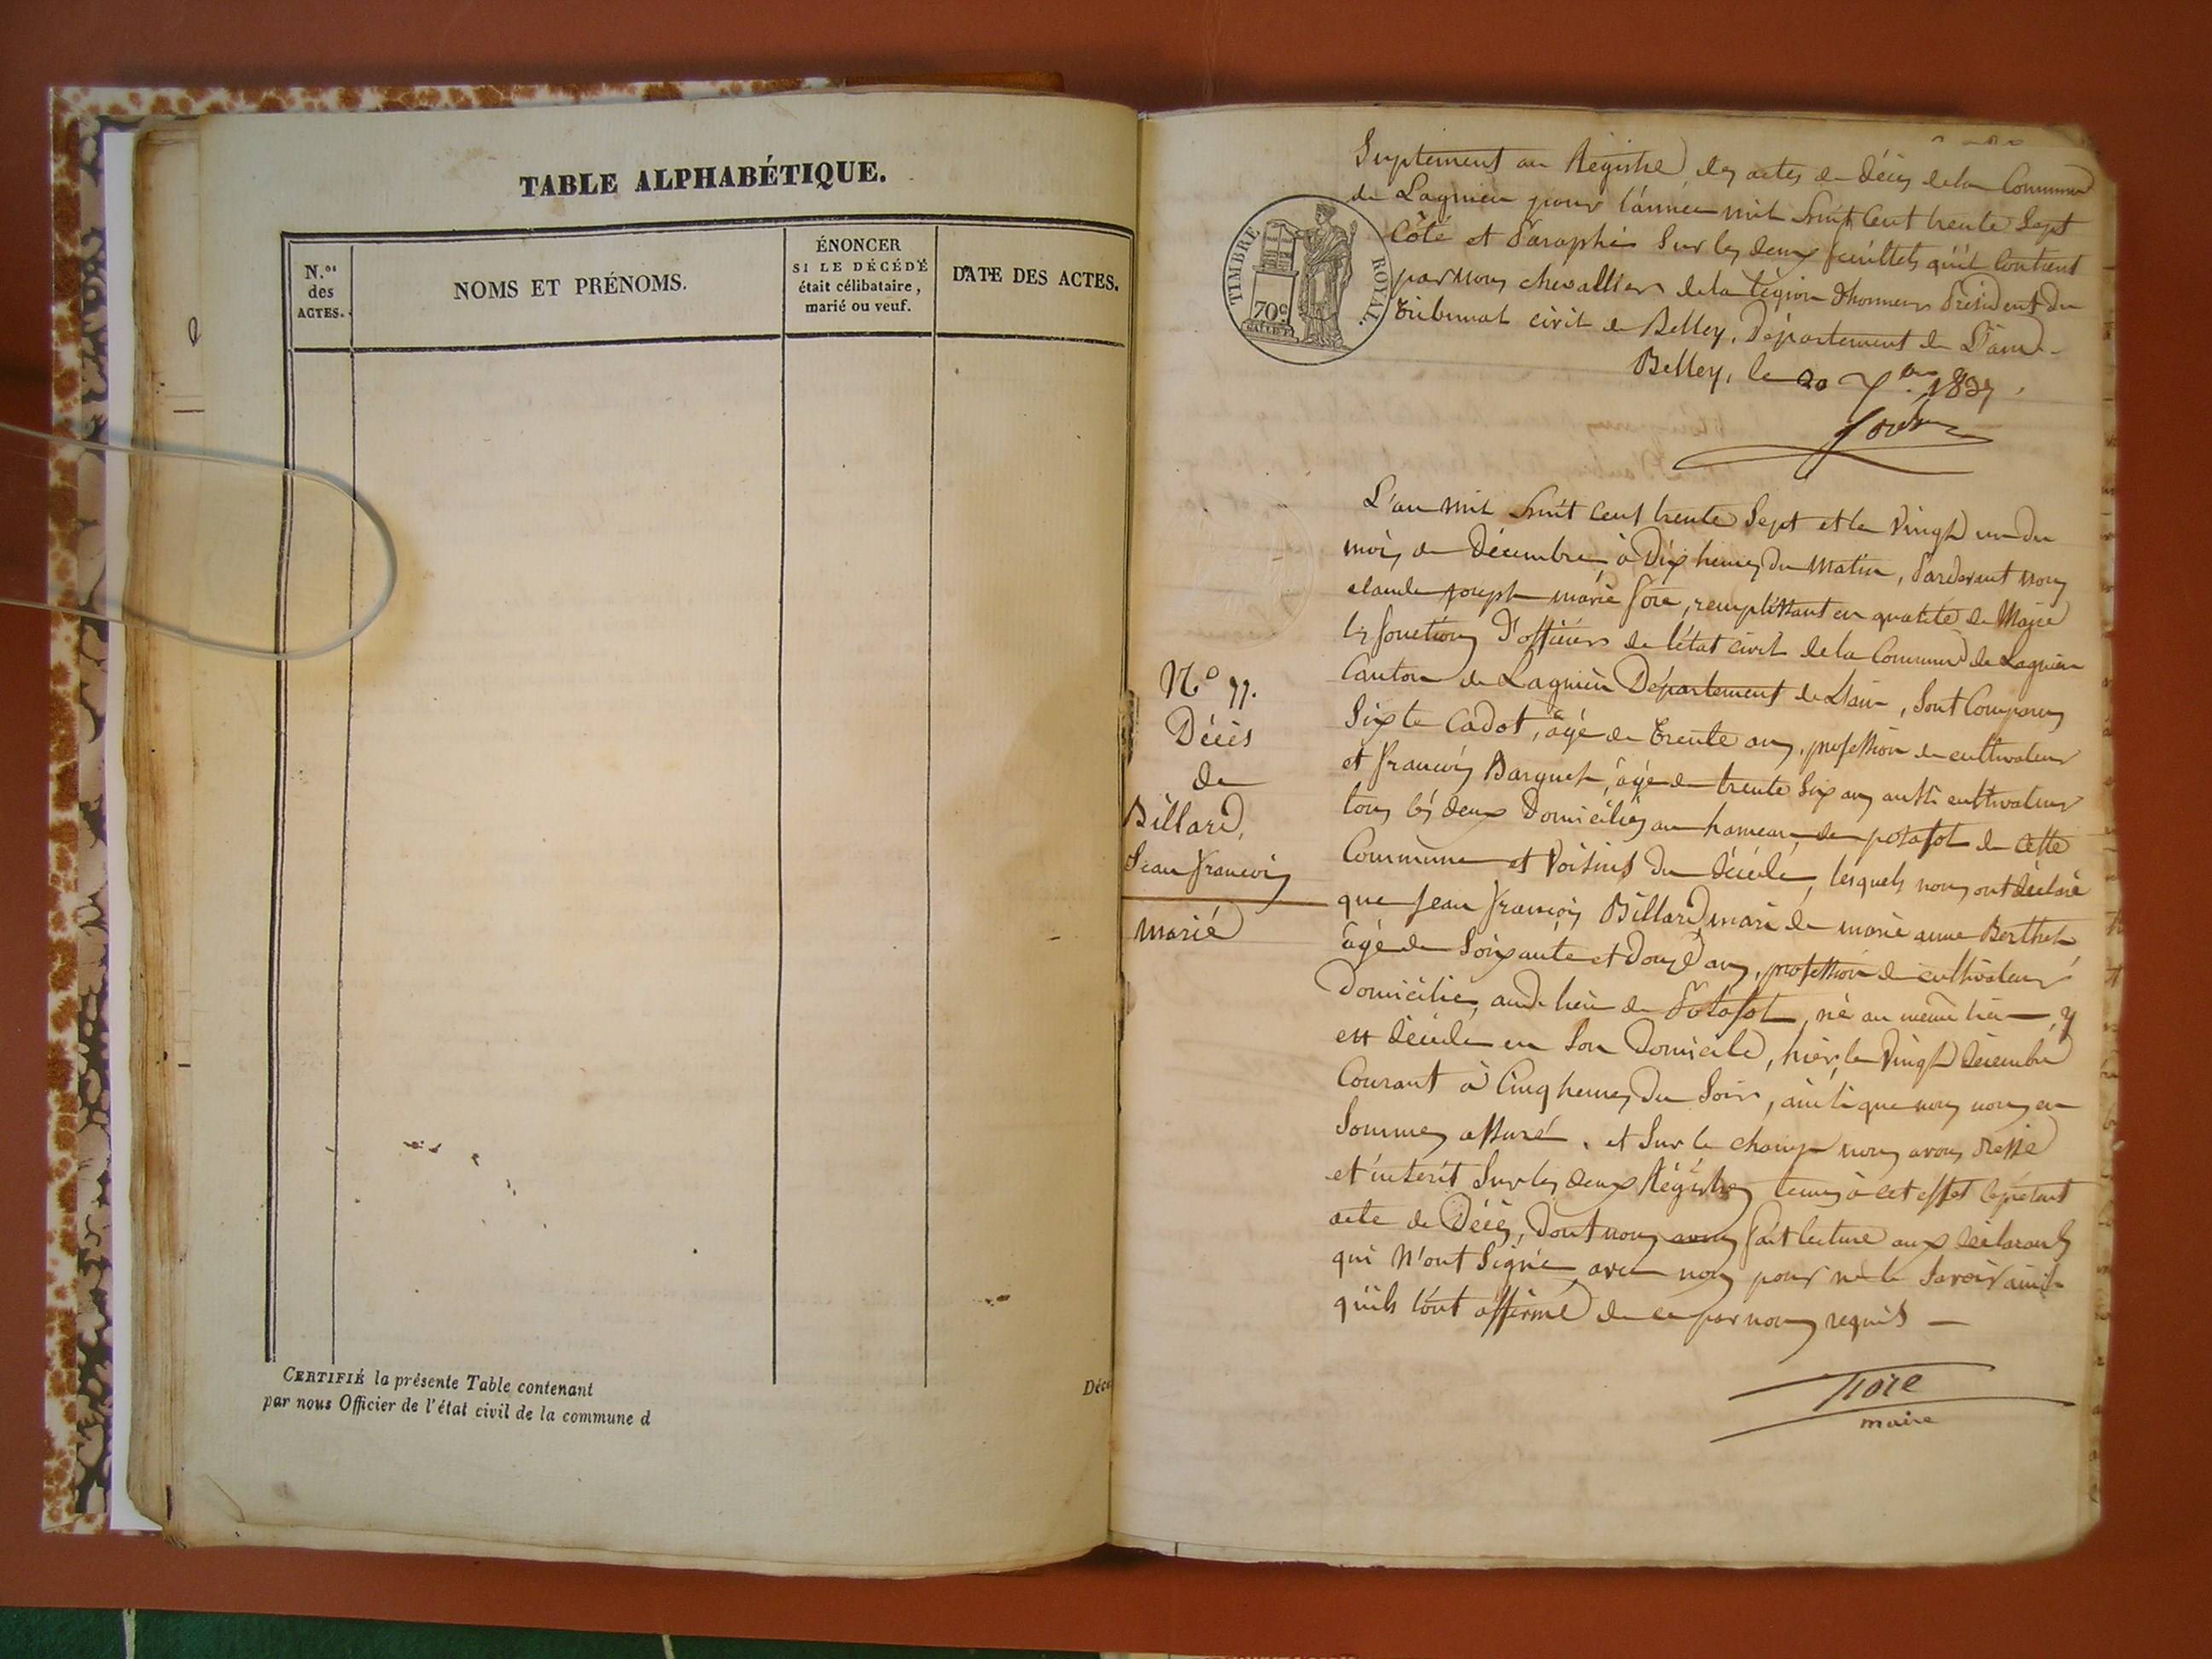 TABLE ALPHABÉTIQUE.
N.os
des
ACTES.
NOMS ET PRÉNOMS.
ÉNONCER
SI LE DÉCÉDÉ
était célibataire,
marié ou veuf.
DATE DES ACTES.
CERTIFIÉ la présente Table contenant
Déc
par nous Officier de l'état civil de la commune d
Suplement au Régistre des actes de décès de la Commune
de Lagnieu pour l'année mil huit Cent trente Sept
Côté et Paraphé Sur les deux feuillets qu'il Contient
par Nous chevallier de la légion d'honneur Président du
tribunal civil de Belley, Département de L'ain
Belley, le 20 Xbre 1837,
TIMBRE ROYAL.
70c
L'an mil huit Cent trente Sept et le Vingt un du
mois de Décembre, à Dix heures du matin, Pardevant nous
claude joseph marie Tore, remplissant en qualité de Maire
les fonctions D'officier de l'état civil de la Commune de Lagnieu
Canton de Lagnieu Département de L'ain, Sont Comparus
Sixte Cadot, âgé de trente ans, profession de cultivateur
et françois Barquet, âgé de trente Six ans aussi cultivateur
tous les deux Domiciliés au hameau de posafol de cette
Commune et Voisins du décédé, lesquels nous ont déclaré
que Jean françois Billard, mari de marie anne Berthet
âgé de Soixante et Douze ans, profession de cultivateur
Domicilié, audit lieu de Posafol, né au même lieu, y
est décédé en Son Domicile, hier, le Vingt Décembre
Courant à Cinq heures du Soir, ainsi que nous nous en
Sommes assuré. et Sur le champ nous avons dressé
et inscrit Sur les deux Régistres tenus à cet effet le présent
acte de Décès, Dont nous avons fait lecture aux déclarants
qui N'ont Signé avec nous pour ne le Savoir ainsi
qu'ils l'ont affirmé de ce par nous requis —
maire
N° 77.
Décès
de
Billard,
Jean françois
marié